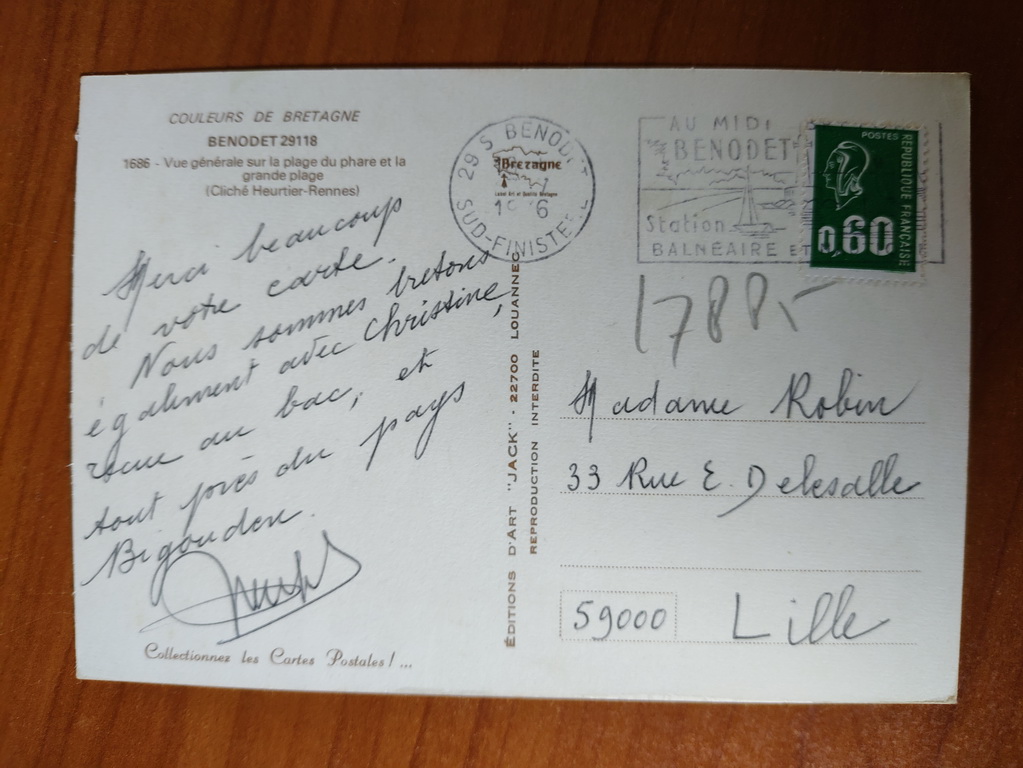 COULEURS DE BRETAGNE
BENODET 29118
1686 - Vue générale sur la plage du phare et la
grande plage
(Cliché Heurtier-Rennes)
Merci beaucoup
de votre carte.
Nous sommes bretons
également avec Christine,
reçue au bac, et
tout près du pays
Bigouden.
Collectionnez les Cartes Postales ! ...
ÉDITIONS D'ART "JACK" - 22700 LOUANNEC
REPRODUCTION INTERDITE
29 S BENODET
Bretagne
SUD-FINISTERE
AU MIDI
BENODET
Station
BALNÉAIRE ET
POSTES
REPUBLIQUE FRANÇAISE
0,60
Madame Robin
33 Rue E. Delesalle
59000 Lille